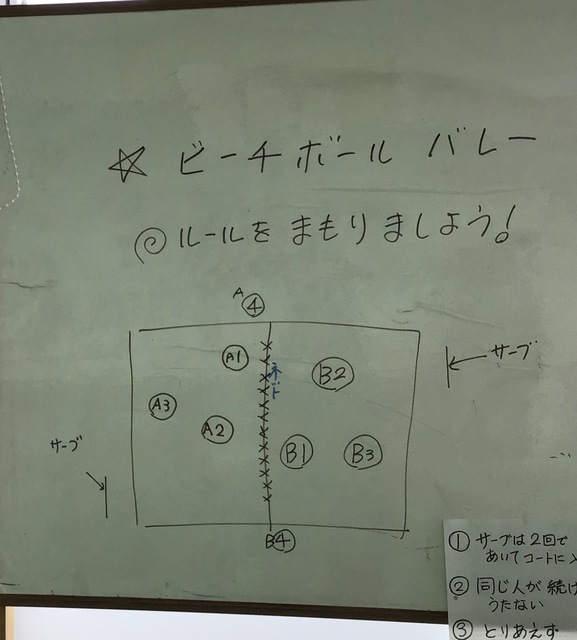 ☆ ビーチボール バレー
◎ルールを まもりましょう!
A④
A1
B2
ネット
サーブ
A3
A2
B1
B3
サーブ
B④
① サーブは2回で
あいてコートに入
② 同じ人が 続け
うたない
③ とりあえず